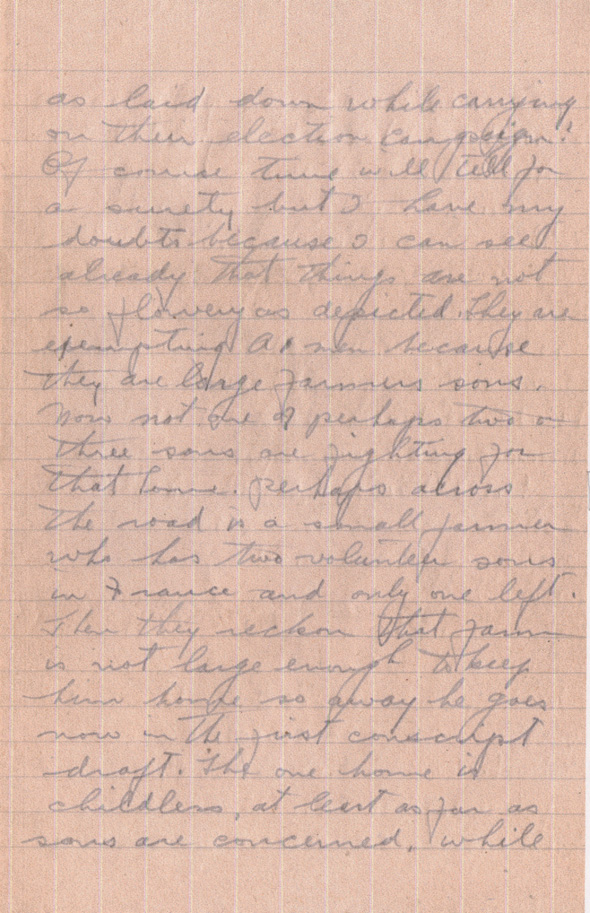 as laid down while carrying
on their election campaign.
Of course time will tell for
a surety but I have my
doubts because I can see
already that things are not
so flowery as depicted. They are
exempting A1 men because
they are large farmers sons.
Now not one of perhaps two or
three sons are fighting for
that home. perhaps across
the road is a small farmer
who has two volunteer sons
in France and only one left.
Then they reckon that farm
is not large enough to keep
him home so away he goes
now in the first conscript
draft. The one home is
childless, at least as far as
sons are concerned, while